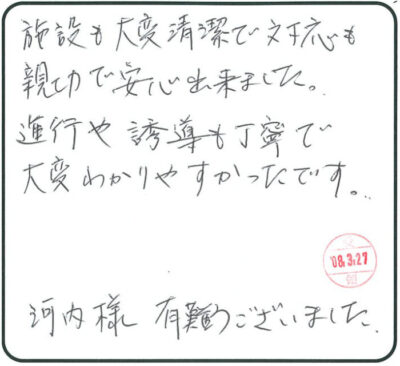 施設も大変清潔で対応も
親切で安心出来ました。
進行や誘導も丁寧で
大変わかりやすかったです。
'08.3.27
河内様 有難うございました。